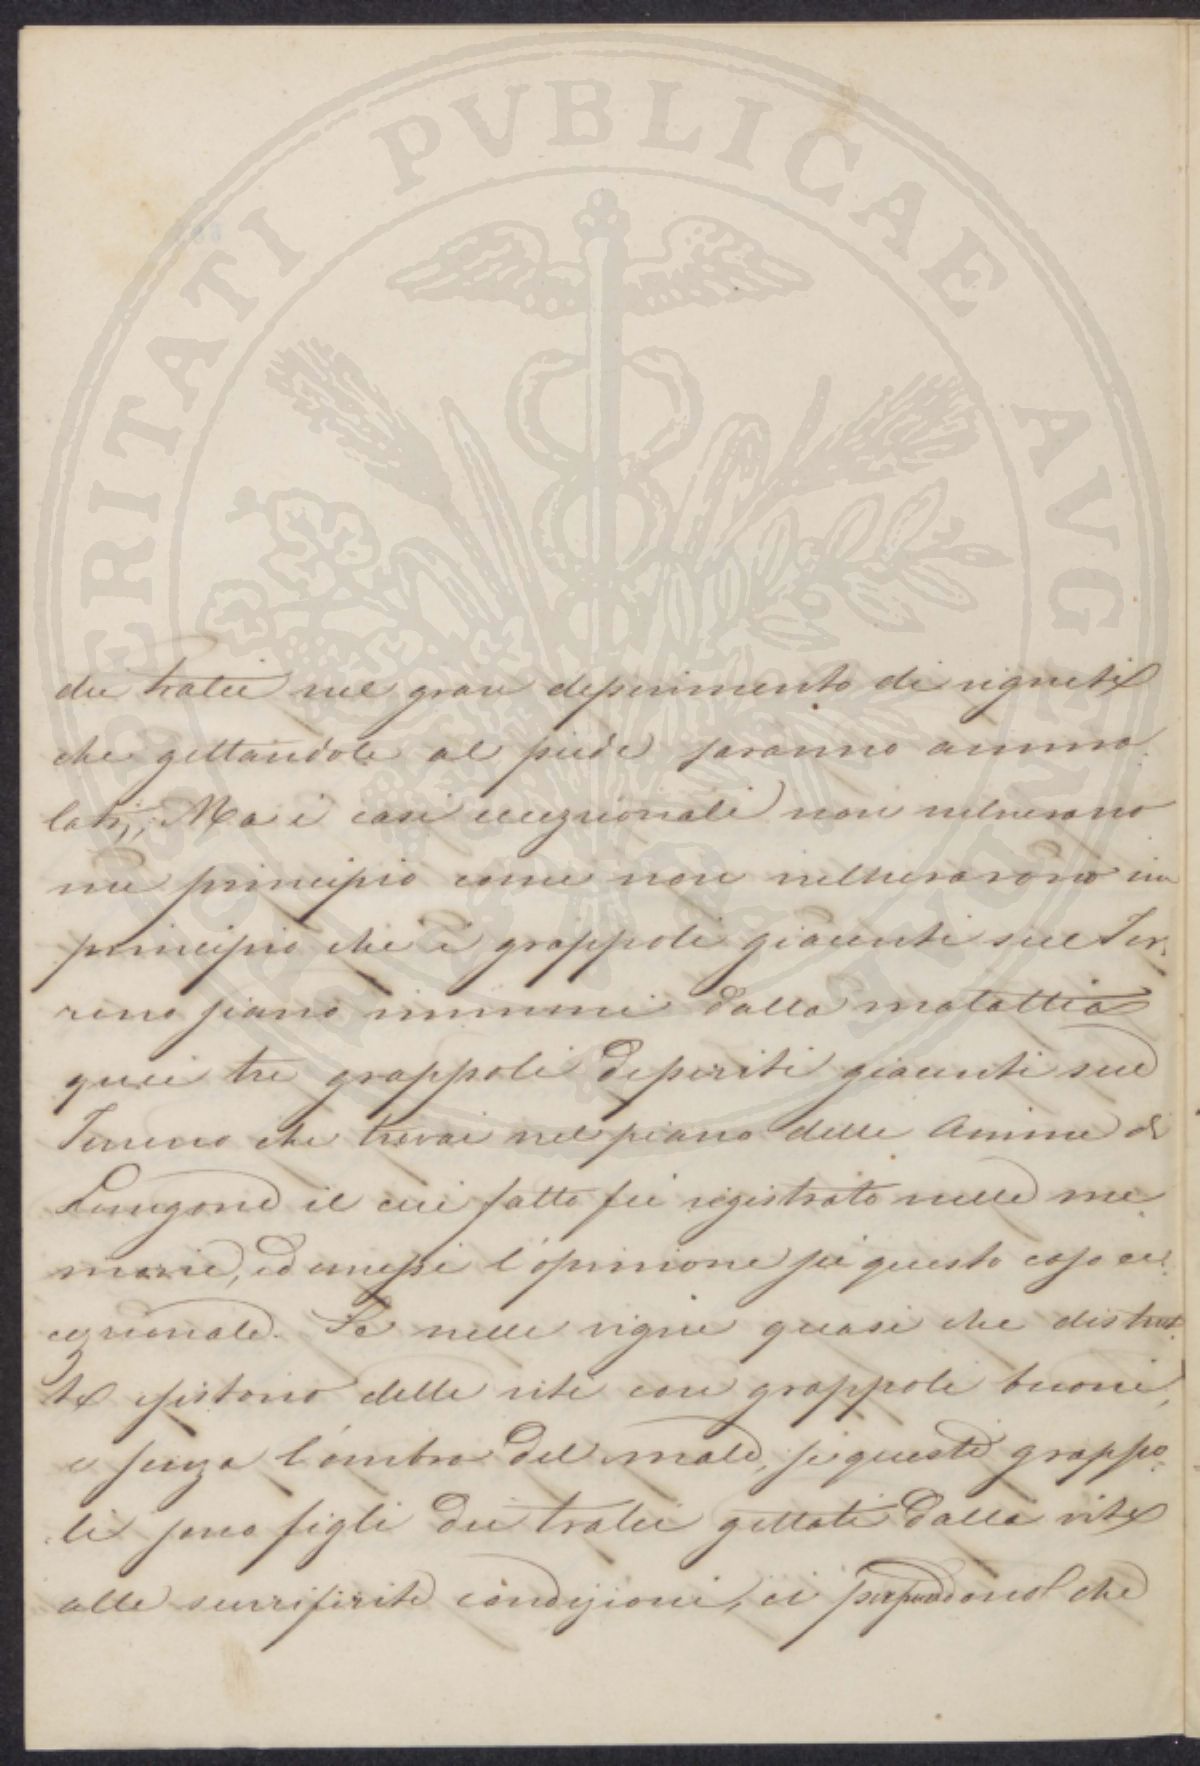 PROSPERITATI PVBLICAE AVGENDAE
dei tralci nel gran deperimento di vigneti
che gettandole al piede saranno amma-
lati; Ma i casi eccezionali non
un principio come non in
principio che i grappoli giacenti sul Ter-
reno siano immuni dalla malattia
quei tre grappoli deperiti giacenti sul
Terreno che trovai nel piano delle Anime di
Longone il cui fatto fu registrato nelle me-
morie, ed emessi l'opinione su questo caso ec-
cezionale. Se nelle vigne quasi che distrut-
te esistono delle viti con grappoli buoni,
e senza l'ombra del male, se questi grappo-
li sono figli dei tralci gettati dalla vite
alle surriferite condizioni, ci persuadono che